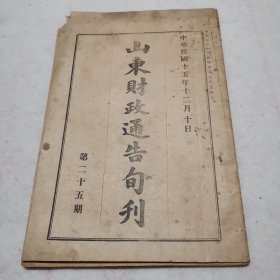 中華民國十五年十二月十日
山東財政通告旬刊
第二十五期